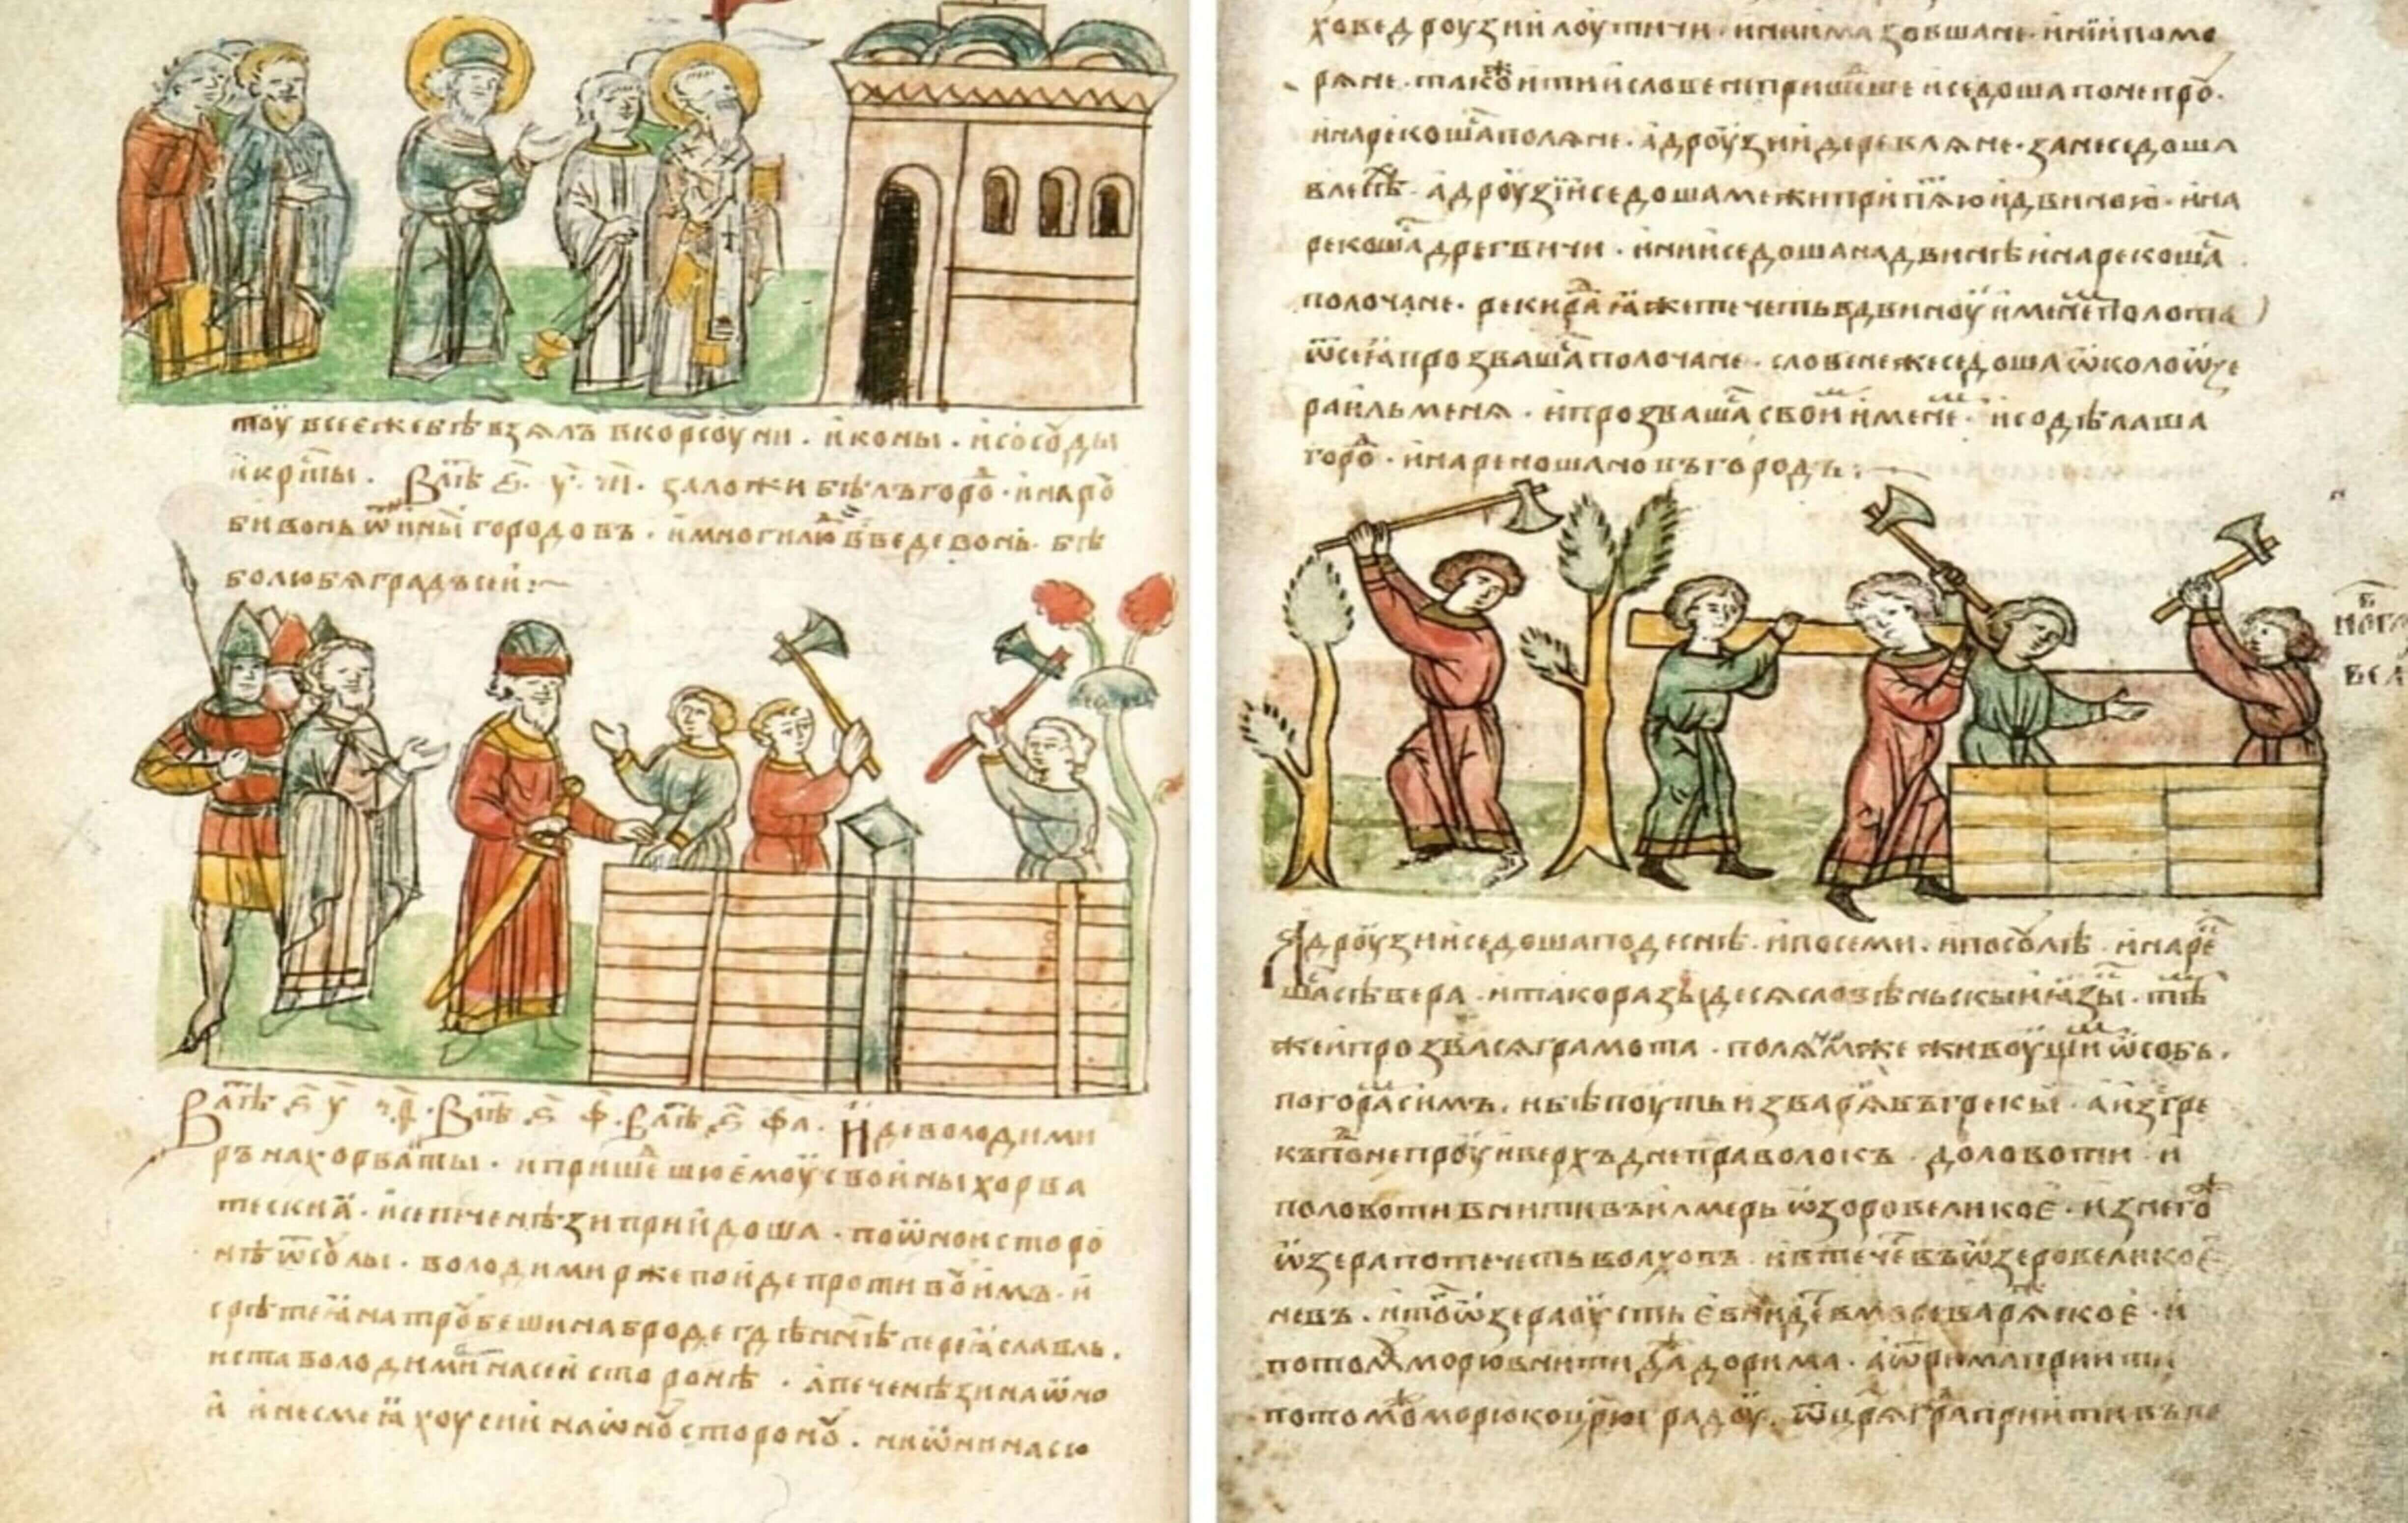 тоу всеежебѣвзялъ вкорсоуни. иконы. исосоуды
икрⷭ҇ты. Влѣⷮ ҂ѕ҃. у҃. ч҃. заложи бѣлъгороⷣ. инароу
бивонь ѿинꙑⷯ городовъ. имногилюⷣ введевонь. бѣ
болюбяградъсеи:~
Влѣⷮ ҂ѕ҃ у҃ Влѣⷮ ҂ѕ҃ ф҃. Влѣⷮ ҂ѕ҃ фа҃. Идеволодими
ръ нахорваты. ипришеⷣшюемоу своины хорва
тьскиꙗ. исепеченѣзи приидоша. поѡнои сторо
нѣ ѿсоулы. володимирже поиде противоуимъ. и
срѣтеꙗ натроубешинабродегдѣнн҃ѣ переꙗславль.
иста володимиⷬ насеи сторонѣ. апеченѣзи наѡно
и инесмеꙗхоу сии наѡноу сторону. ниѡнинасю
ховедроузии лоутичи. инии мазовшане. инии поме
ряне. такоⷤ итиисловенепришеⷣше иседошапонепроу.
инарекошаⷭ поляне. адроузии деревляне. занеседоша
влесѣⷯ. адроузиі седошамежиприпⷮяюидвиною. ина
рекошаⷭ дреговичи. инииседошанадвинѣ инарекошаⷭ
полочане. рекираⷣ ꙗжетечетьвдвиноу именеⷨ полота
ѿсеꙗпрозвашаⷭ полочане. словенежеседоша ѡколоѡзе
раильменя. ипрозвашаⷭ своиⷨ именеⷨ. исодѣлаша
гороⷣ. инарекошановъгородъ:~
Адроузиї седошаподеснѣ. ипосеми. ипосоулѣ. инареⷱ
шаⷭ сѣвера. итакоразыдесясловѣньскыи ꙗзыⷦ. тѣⷨ
жеипрозвасяграмота. поляноⷨже живоущиⷨ ѡсобь.
погораⷨсимъ. ибѣпоуть изъваряⷢвъгрекы. аизгре
къпонепроу ивверхъднеправолокъ. доловоти. и
половоти внити въилмерь ѡзоровеликое. изнегоⷤ
ѡзерапотечетьволховъ. ивтечеⷮвъѡзеровеликое
нево. итогоѡзераоустье внидеⷮвморе варяⷤское. и
потомоуморювнитидаⷤ дорима. аѿримаприити
потомоуⷤ морюкоцрⷭ҇юградоу. ѿцрⷭ҇яграⷣприитивъпо